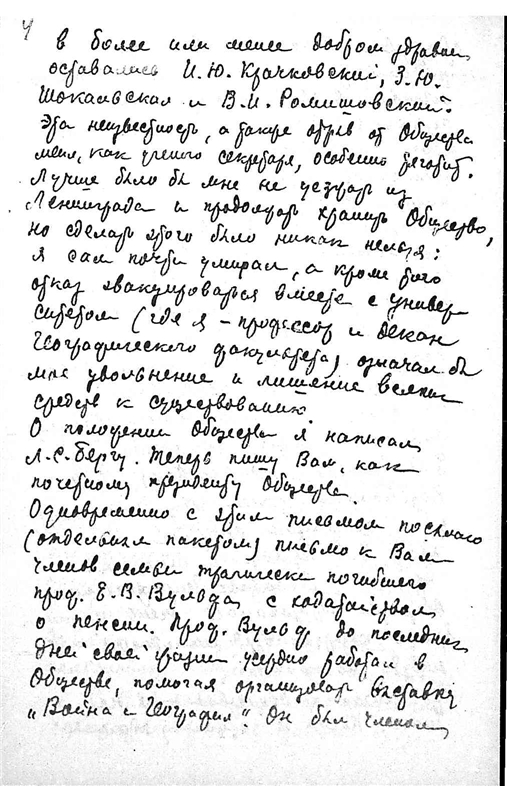 4
в более или менее добром здравии
оставались И.Ю. Крачковский, З.Ю.
Шокальская и В.И. Ромишовский.
Эта неизвестность, а также отрыв от Общества
меня, как ученого секретаря, особенно тяготит.
Лучше было бы мне не уезжать из
Ленинграда и продолжать хранить Общество,
но сделать этого было никак нельзя:
я сам почти умирал, а кроме того
отказ эвакуироваться вместе с универ-
ситетом (где я – профессор и декан
Географического факультета) означал бы
мне увольнение и лишение всяких
средств к существованию.
О положении Общества я написал
Л.С. Бергу. Теперь пишу Вам, как
почетному президенту Общества.
Одновременно с этим письмом посылаю
(отдельным пакетом) письмо к Вам
членов семьи трагически погибшего
проф. Е.В. Вульфа, с ходатайством
о пенсии. Проф. Вульф до последних
дней своей жизни усердно работал в
Обществе, помогая организовать выставку
„Война и География“. Он был членом